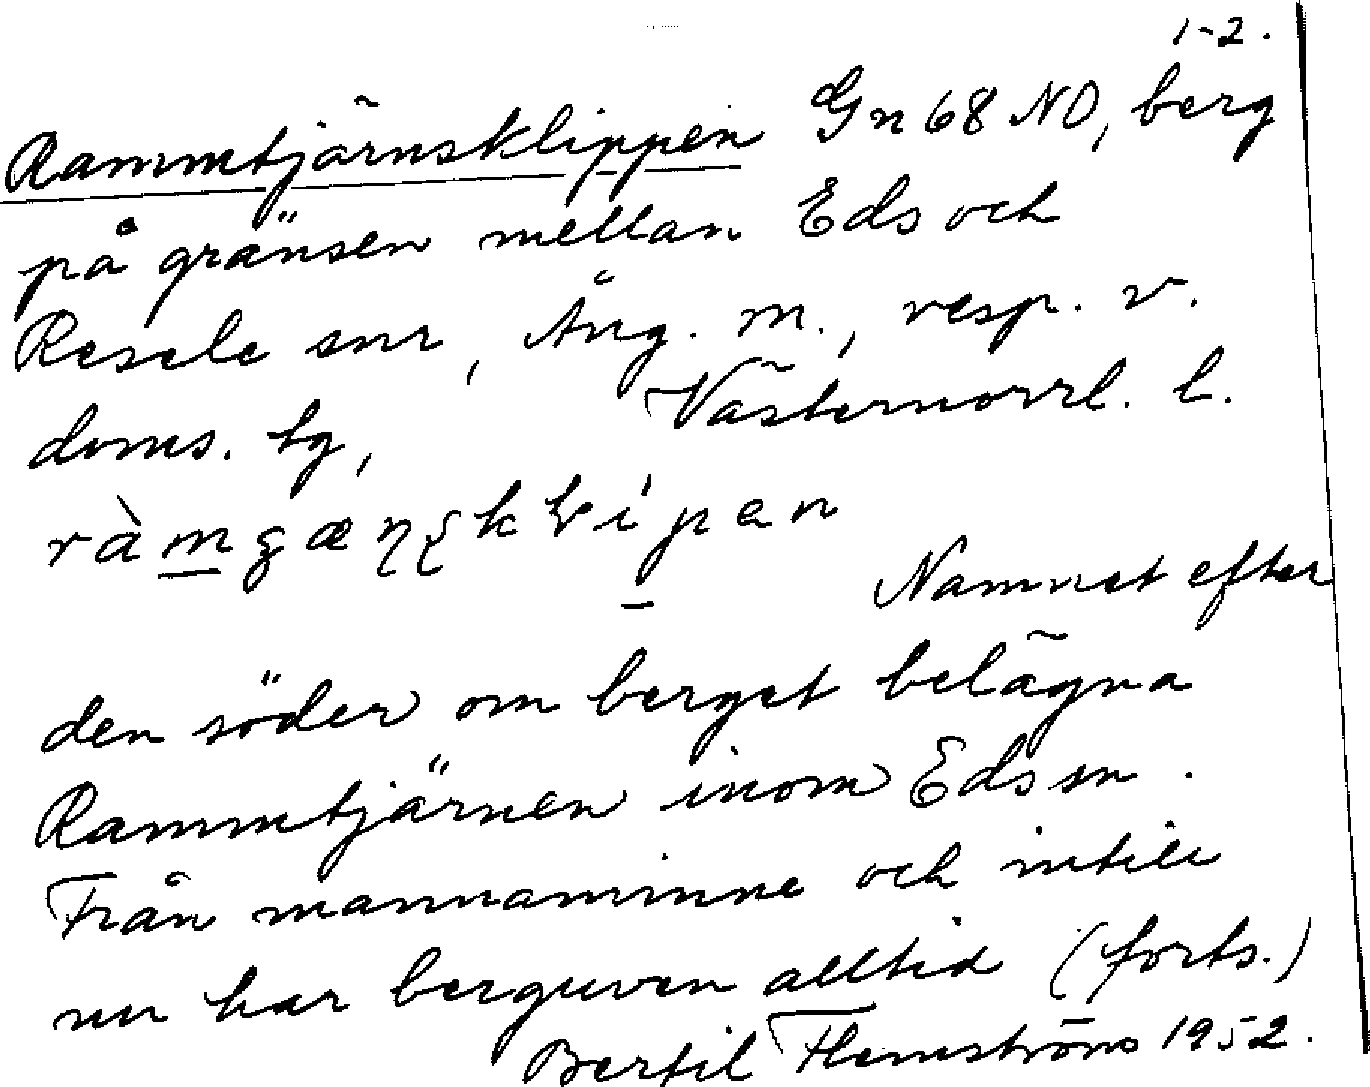 1-2.
Rammtjärnsklippen Gn 68 NO, berg
på gränsen mellan Eds och
Resele snr, Ång. m., resp. v.
doms. tg, Västernorrl. l.
Namnet efter
den söder om berget belägna
Rammtjärnen inom Eds sn.
Från mannaminne och intill
nu har berguven alltid (forts.)
Bertil Flemström 1952.